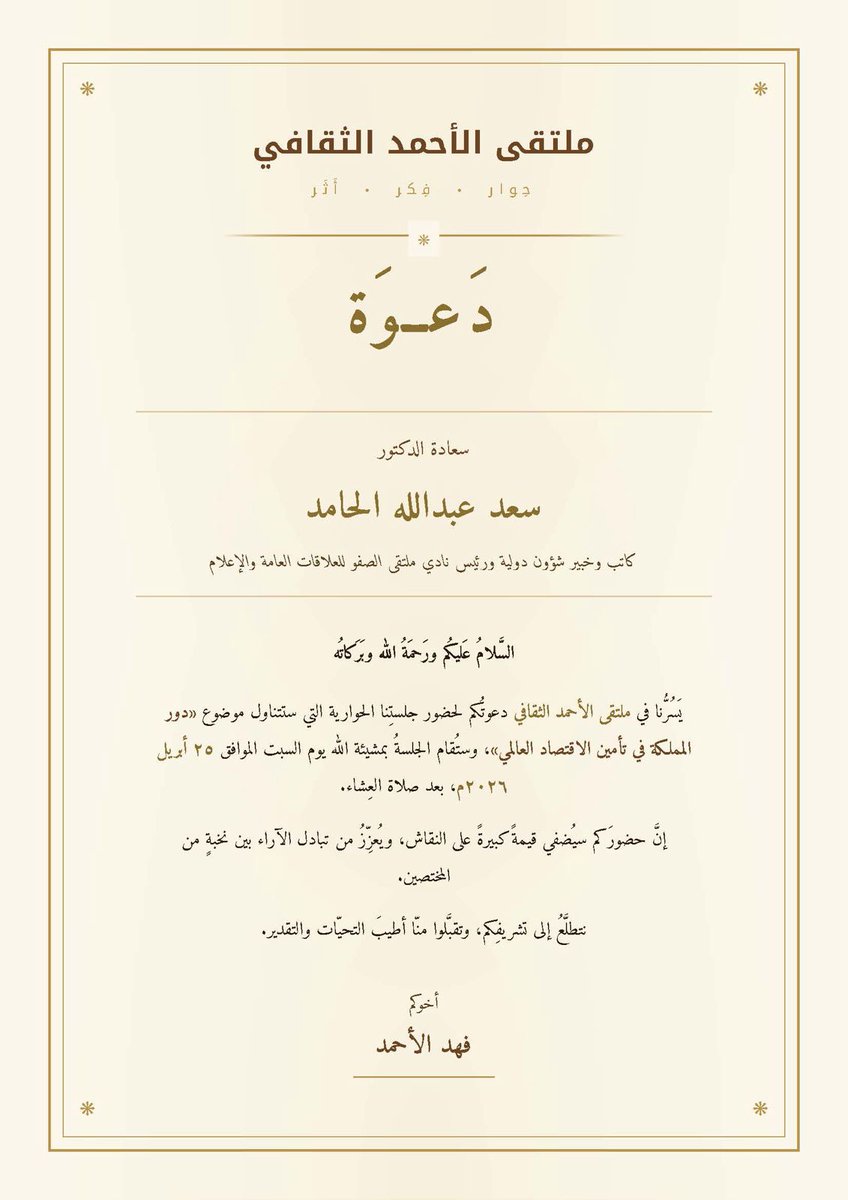 ملتقى الأحمد الثقافي
حِوار • فِكر • أَثَر
دَعـوَة
سعادة الدكتور
سعد عبدالله الحامد
كاتب وخبير شؤون دولية ورئيس نادي ملتقى الصفو للعلاقات العامة والإعلام
السَّلامُ عَليكُم ورَحمَةُ الله وبَرَكاتُه
يَسُرُّنا في ملتقى الأحمد الثقافي دعوتُكم لحضور جلستِنا الحوارية التي ستتناول موضوع «دور
المملكة في تأمين الاقتصاد العالمي»، وستُقام الجلسةُ بمشيئة الله يوم السبت الموافق ٢٥ أبريل
٢٠٢٦م، بعد صلاة العِشاء.
إنَّ حضورَكم سيُضفي قيمةً كبيرةً على النقاش، ويُعزِّزُ من تبادل الآراء بين نخبةٍ من
المختصين.
نتطلَّعُ إلى تشريفِكم، وتقبَّلوا منّا أطيبَ التحيّات والتقدير.
أخوكم
فهد الأحمد